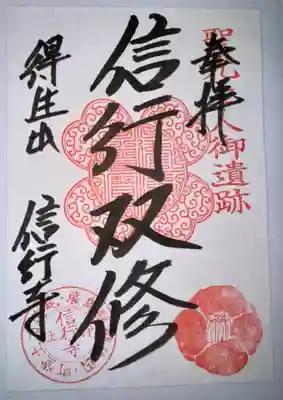 奉拝
聖 人御遺跡
信行双修
得生山
信行寺
信行寺